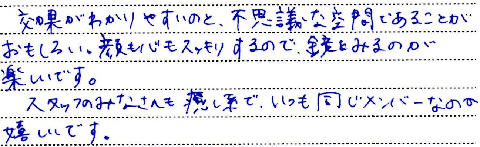 効果がわかりやすいのと、不思議な空間であることが
おもしろい。顔も心もスッキリするので、鏡をみるのが
楽しいです。
スタッフのみなさんも癒し系で、いつも同じメンバーなのが
嬉しいです。